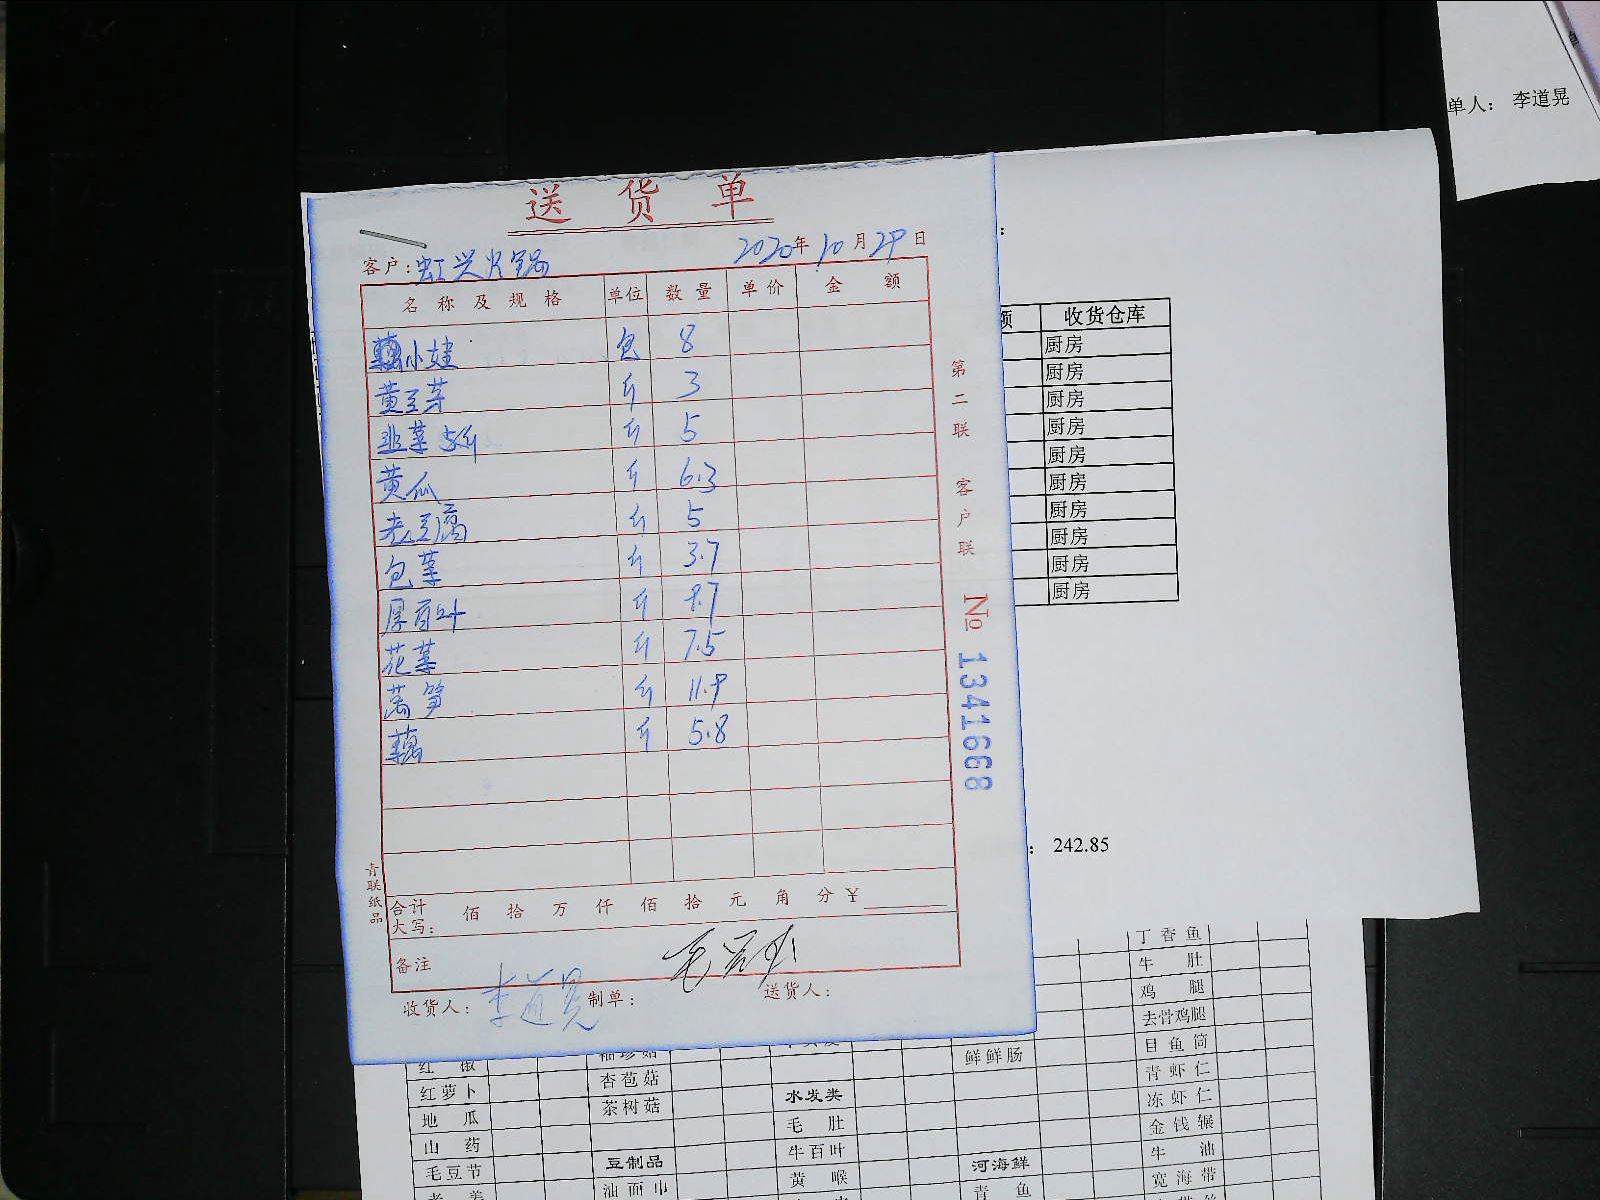 单人： 李道晃
送 货 单
客户：虹兴火锅 2020年10月29日
名 称 及 规 格 单位 数 量 单 价 金 额
小娃 包 8
黄豆芽 斤 3
韭菜 5斤 斤 5
黄瓜 斤 6.3
老豆腐 斤 5
包菜 斤 3.7
厚百叶 斤
花菜 斤 7.5
莴笋 斤 11.9
藕 斤 5.8
合计 佰 拾 万 仟 佰 拾 元 角 分 ¥
大写：
备注
收货人： 李道晃 制单： 送货人：
第二联 客户联
№ 1341668
青联纸品
额 收货仓库
厨房
厨房
厨房
厨房
厨房
厨房
厨房
厨房
厨房
厨房
： 242.85
丁香鱼
牛 肚
鸡 腿
去骨鸡腿
目鱼筒
红 椒 袖珍菇 鲜鲜肠 青虾仁
红萝卜 杏苞菇 水发类 冻虾仁
地 瓜 茶树菇 毛 肚 金钱辗
山 药 牛百叶 牛 油
毛豆节 豆制品 黄 喉 河海鲜 宽海带
老 姜 油面巾 青 鱼